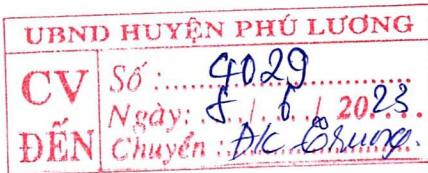 UBND HUYỆN PHÚ LƯƠNG
CV ĐẾN
Số: 4029
Ngày: 8/6/2023
Chuyển: Đ/c Trung.